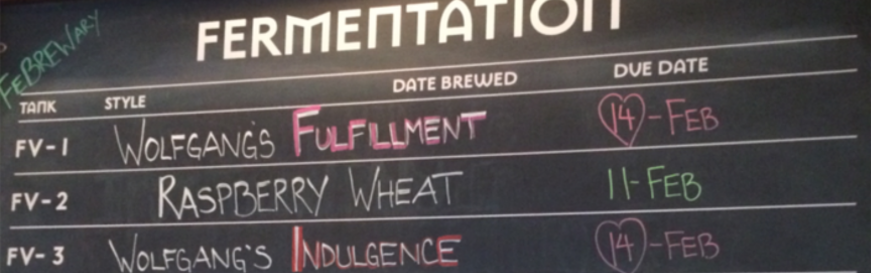 FERMENTATION
FEBREWARY
TANK STYLE DATE BREWED DUE DATE
FV-1 WOLFGANG'S FULFILLMENT 14-FEB
FV-2 RASPBERRY WHEAT 11-FEB
FV-3 WOLFGANG'S INDULGENCE 14-FEB